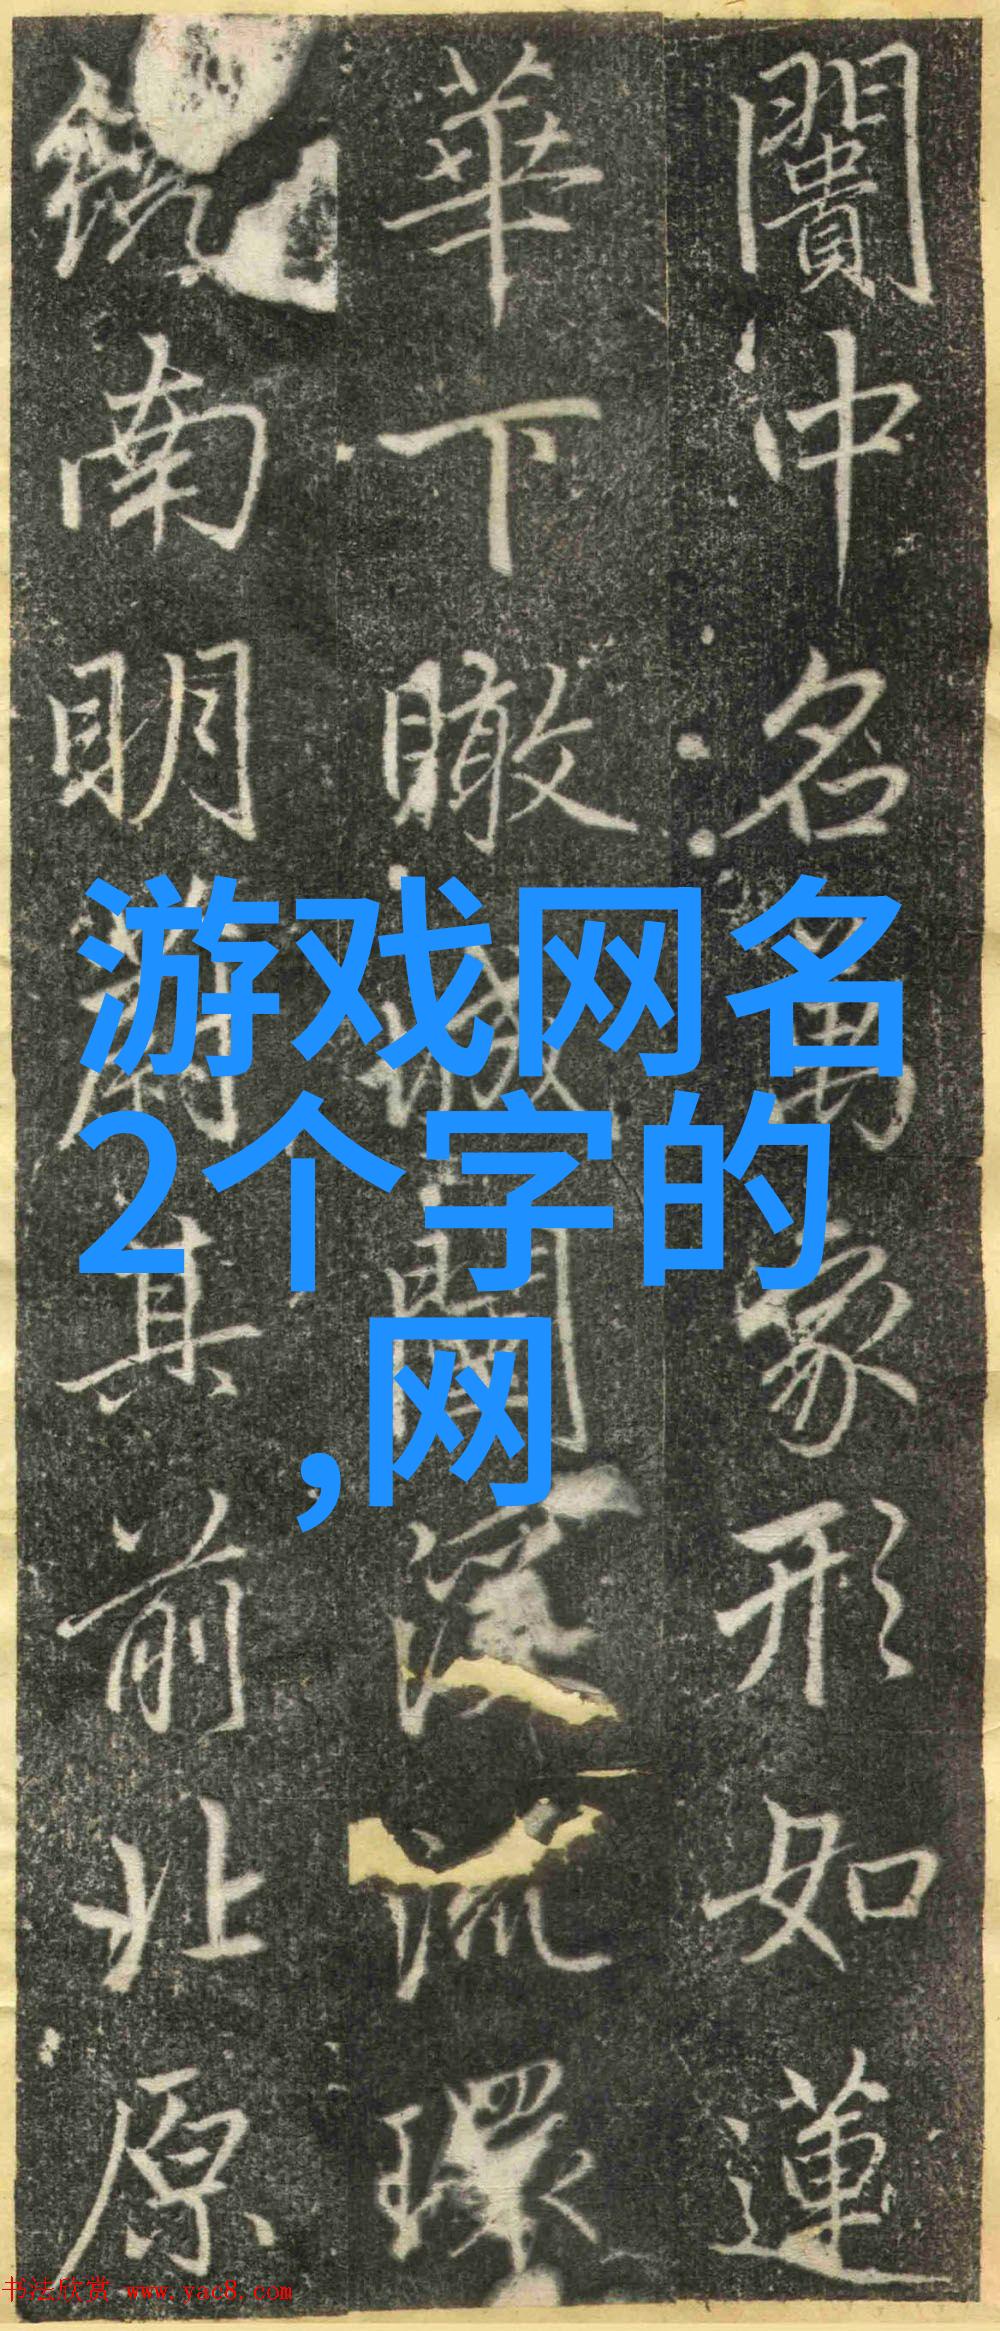 闠中名萬象形如蓮
華下瞰城闉深流環
南明蔚其前北原
游戏网名
2个字的
,网
书法欣赏 www.yac8.com